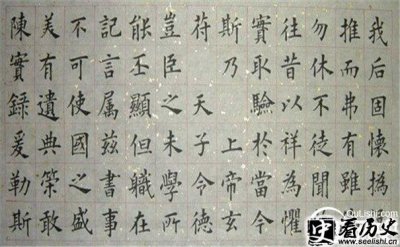 我后固懷撝
推而弗有雖
勿休不徒聞
往昔以祥為懼
實取驗於當今
斯乃 上帝玄
符 天子令德
豈臣之末學所
能丕顯但職在
記言属茲書事
不可使國之盛
美有遺典策敢
陳實錄爰勒斯
看历史
www.seelishi.cn